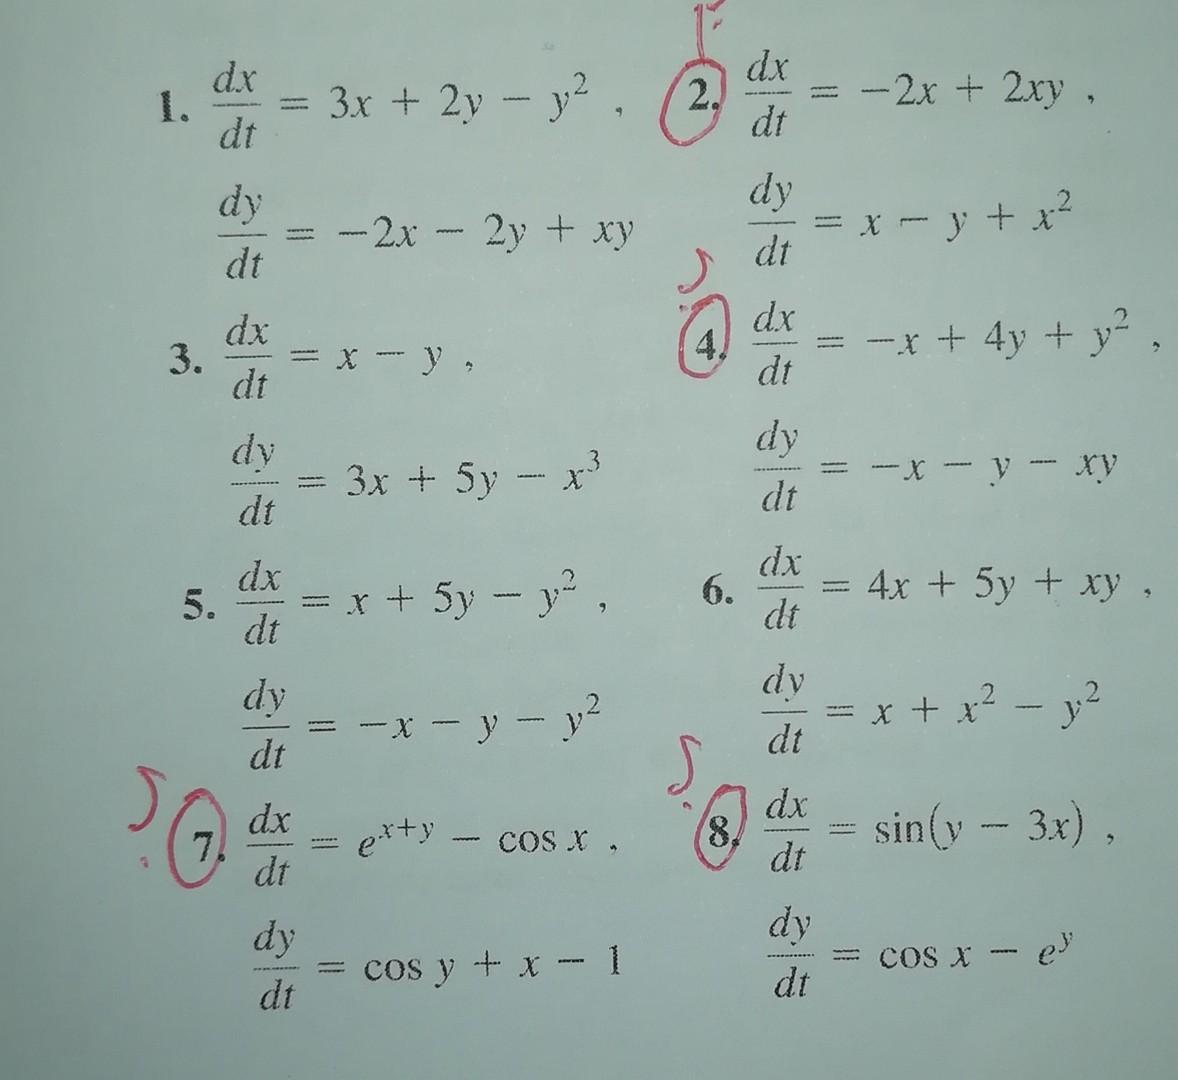 1. dx/dt = 3x + 2y − y² ,
dy/dt = −2x − 2y + xy
2. dx/dt = −2x + 2xy ,
dy/dt = x − y + x²
3. dx/dt = x − y ,
dy/dt = 3x + 5y − x³
4. dx/dt = −x + 4y + y² ,
dy/dt = −x − y − xy
5. dx/dt = x + 5y − y² ,
dy/dt = −x − y − y²
6. dx/dt = 4x + 5y + xy ,
dy/dt = x + x² − y²
7. dx/dt = eˣ⁺ʸ − cos x ,
dy/dt = cos y + x − 1
8. dx/dt = sin(y − 3x) ,
dy/dt = cos x − eʸ